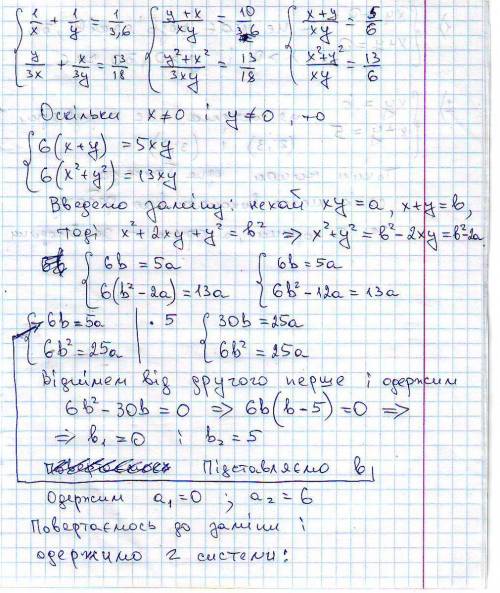 { 1/x + 1/y = 1/3,6   { (y+x)/xy = 10/36   { (x+y)/xy = 5/6
{ y/3x + x/3y = 13/18   { (y²+x²)/3xy = 13/18   { (x²+y²)/xy = 13/6
Оскільки x≠0 і y≠0, то
{ 6(x+y) = 5xy
{ 6(x²+y²) = 13xy
Введемо заміну: нехай xy=a, x+y=b,
тоді x²+2xy+y²=b² ⇒ x²+y²=b²-2xy=b²-2a
{ 6b=5a   { 6b=5a
{ 6(b²-2a)=13a   { 6b²-12a=13a
{ 6b=5a | ·5   { 30b=25a
{ 6b²=25a   { 6b²=25a
Віднімем від другого перше і одержим
6b²-30b=0 ⇒ 6b(b-5)=0 ⇒
⇒ b₁=0 і b₂=5
Підставляємо b
Одержим a₁=0 ; a₂=6
Повертаємось до заміни і
одержимо 2 системи: